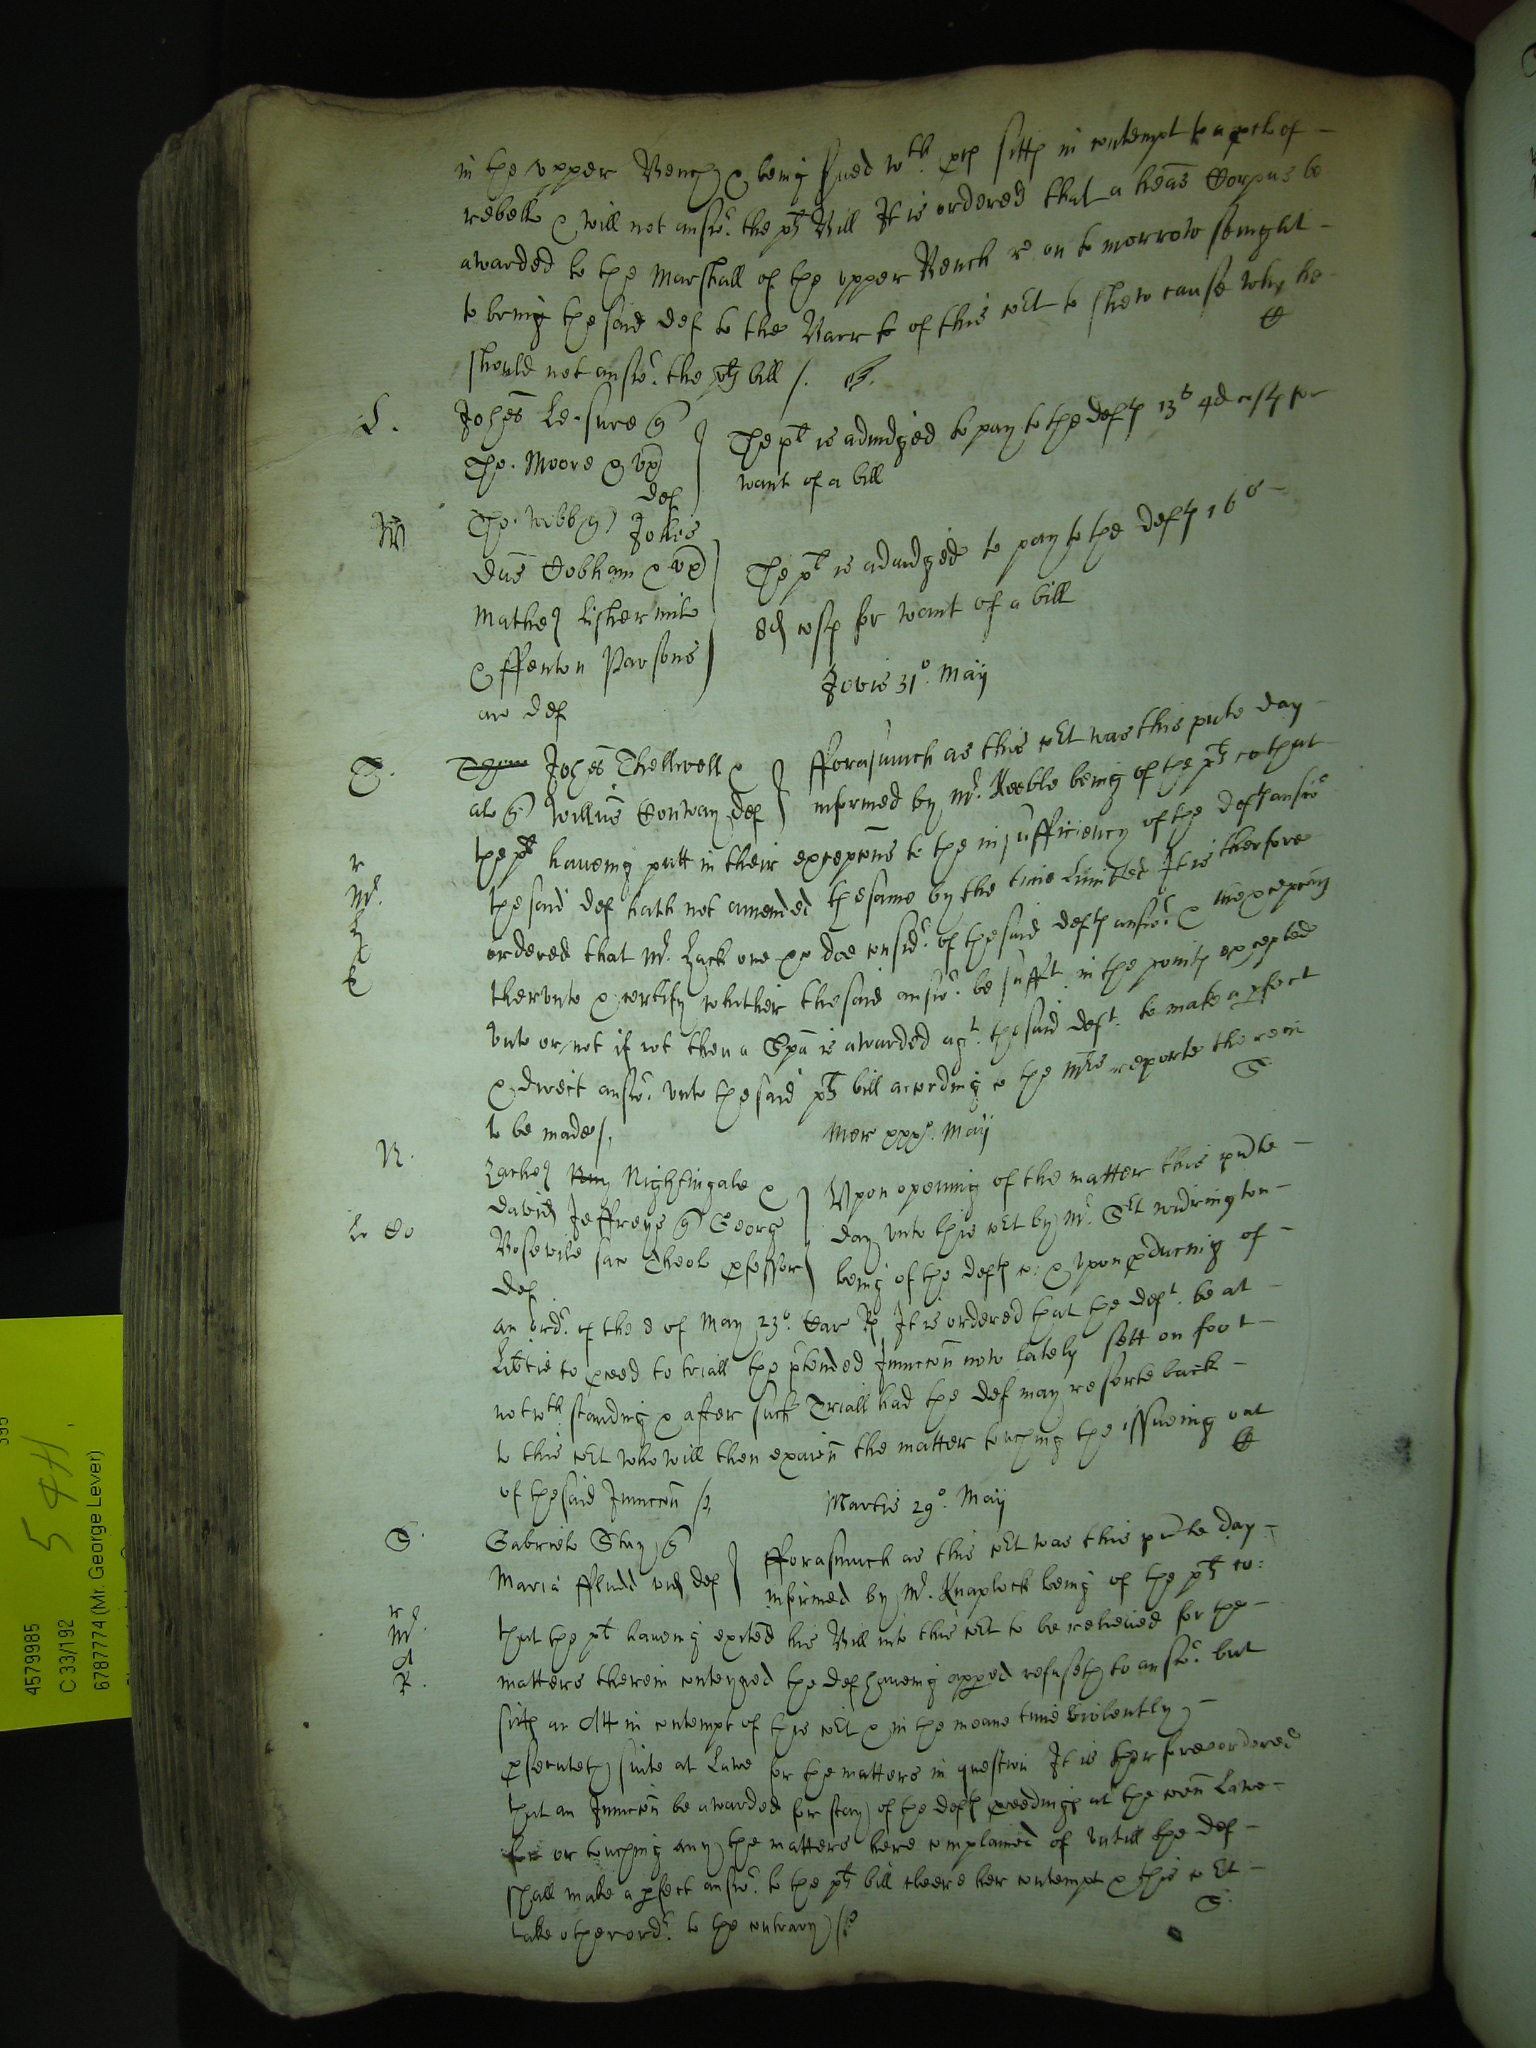 in the upper Bench & being sued wth sitts in contempt to a of
rebellō & will not answ.r the pts Bill It is ordered that a heas Corpus be
awarded to the Marshall of the upper Bench r. on to morrow senight
to bring the said def to the Barr of this Cot to shew cause why he
should not answ.r the pts bill /.
L. Johes Le.sure
Tho. Moore & ux
def
The plt is adiudged to pay to the defts 13s 4d costs for
want of a bill
W Tho. Webb Johes
Dus Cobham & ux
Mathei
& ffenton Parsons
ar def
The plt is adiudged to pay to the defts 16s
8d costs for want of a bill
Jovis 31o. May
T. Johes Thellwell &
al Willus Conway def
fforasmuch as this Cot was this pnte day
informed by Mr. Keeble being of the pts co that
the plts haveing putt in their excepcōns to the insufficiency of the defts answ.r
the said def hath not amended the same by the time limitted It is therfore
r
Mr.
ordered that Mr. Zack one doe consid.r of the said defts answ.r & the excepcōns
thervnto & certify whither the said answ.r be sufft. in the points excepted
vnto or not if not then a Spa is awarded agt. the said deft. to make a pfect
& direct answ.r vnto the said pts bill according to the Mrs reporte therein
to be made /.
Mer xxxo. May
N. Zachei Nightingale &
David Jeffreys Georg
sac Theol pfessor
def
Vpon opening of the matter this pnte
day vnto this Cot by Mr. Sct Widrington
being of the defts co: & vpon pducing of
an ord.r of the 8 of May 23o. Car R It is ordered that the deft. be at
libtie to pceed to triall the ptended Iniuncōn now lately sett on foot
notwthstanding & after such Triall had the def may resorte back
to this Cot who will then exaīn the matter touching the issueing out
of the said Iniuncōn /.
Martis 29o. May
S. Gabriel Stay
Maria ffludd vid def
fforasmuch as this Cot was this pnte day
informed by Mr. Knaplock being of the pts co:
r
Mr.
that the plt haveing exited his Bill into this Cot to be releived for the
matters therein conteyned the def haveing apped refuseth to answ.r but
sitts an Att in contempt of this Cot & in the meane time violently
psecuteth suite at Lawe for the matters in question It is therfore ordered
that an Iniuncōn be awarded for stay of the defts pceedings at the coēn Lawe
for or touching any the matters here complained of vntill the def
shall make a pfect answ.r to the pts bill cleere her contempt & this Cot
take other ord.r to the contrary /.
4579985
C 33/192
6787774 (Mr. George Lever)